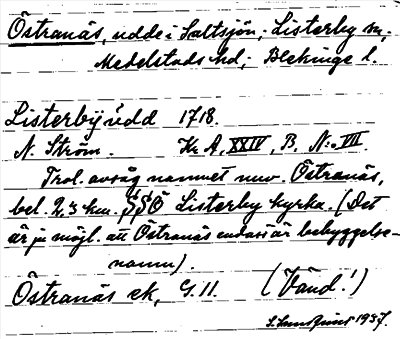 Östranäs, udde i Saltsjön; Listerby sn,
Medelstads hd; Blekinge l.
Listerby üdd 1718.
N. Ström. Kr. A, XXIV, B, N:o VII.
Trol. avsåg namnet nuv. Östranäs,
bel. 2,3 km. SSÖ Listerby kyrka. (Det
är ju möjl. att Östranäs endast är bebyggelse-
namn).
Östranäs ek, G. 11. (Vänd!)
1937.